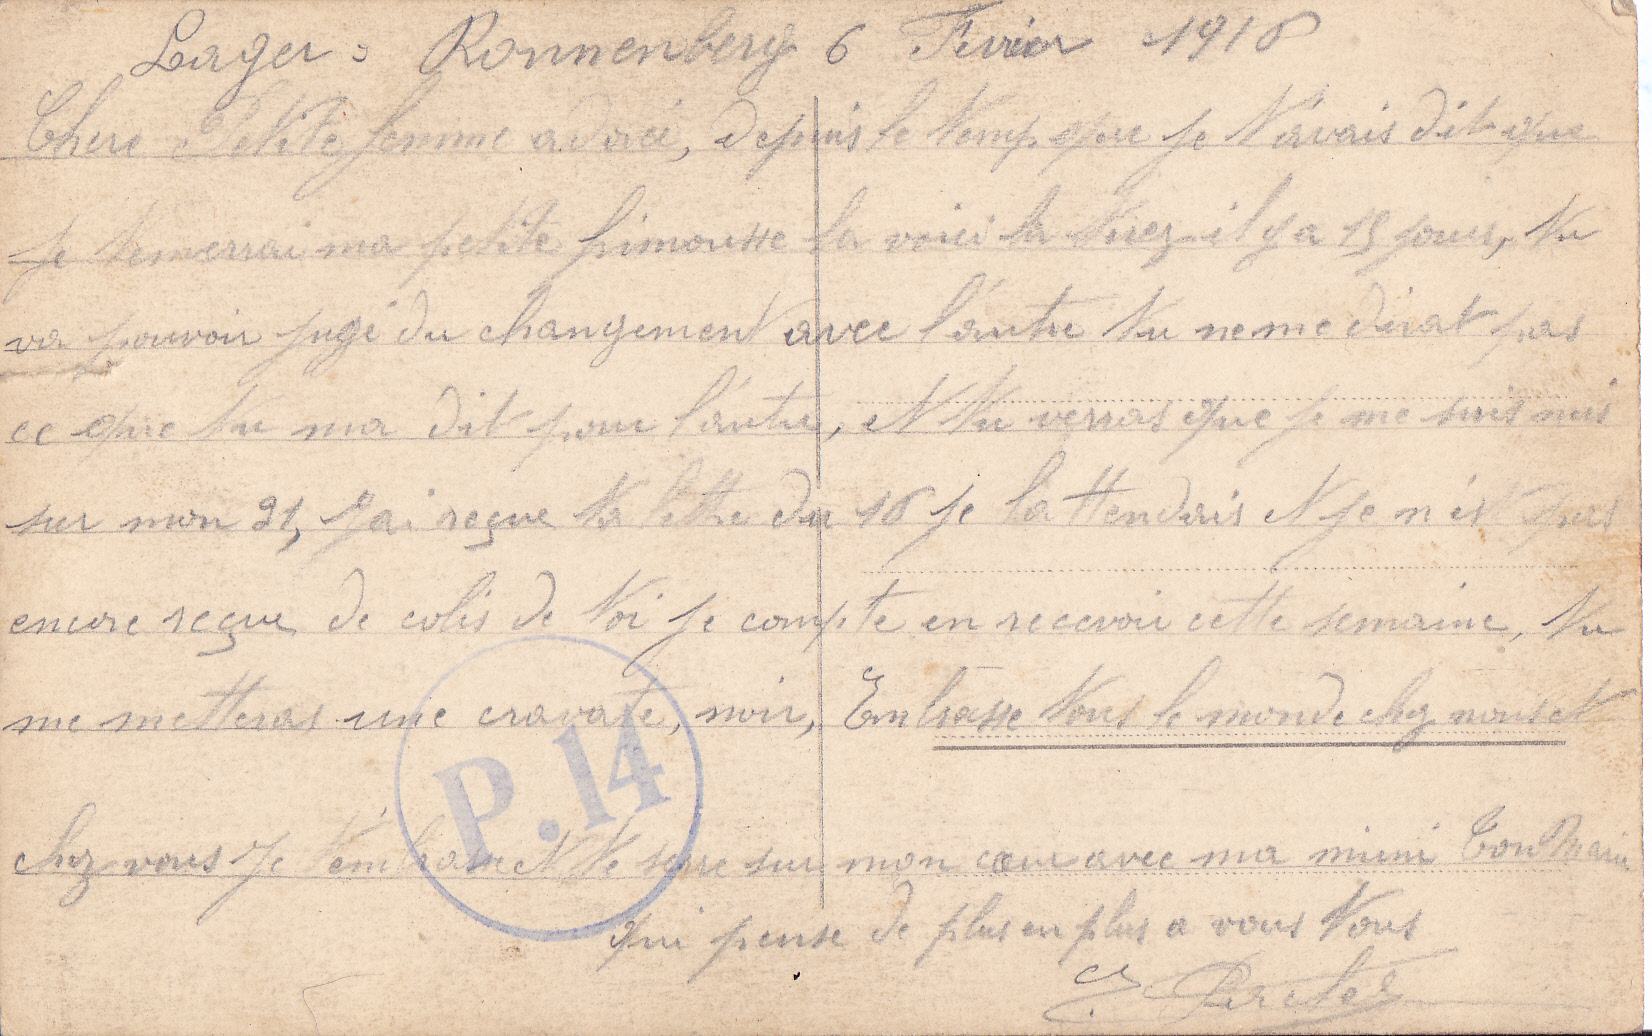 Lager : Ronnenberg 6 Fevrier 1918
Chere Petite femme adorée, depuis le temp que je t'avais dit que
je t'enverrai ma petite frimousse la voici la tirez il y a 15 jours, tu
va pouvoir jugé du changement avec l'autre tu ne me dirat pas
ce que tu ma dit pour l'autre, et tu verras que je me suis mis
sur mon 31, J'ai reçue ta lettre du 18 je l'attendais et je n'est pas
encore reçue de colis de toi je compte en recevoir cette semaine, tu
me metteras une cravate, noir, Embrasse tous le monde chez nous et
chez vous Je t'embrasse et te serre sur mon cœur avec ma mimi Ton Mari
qui pense de plus en plus a vous tous
P.14